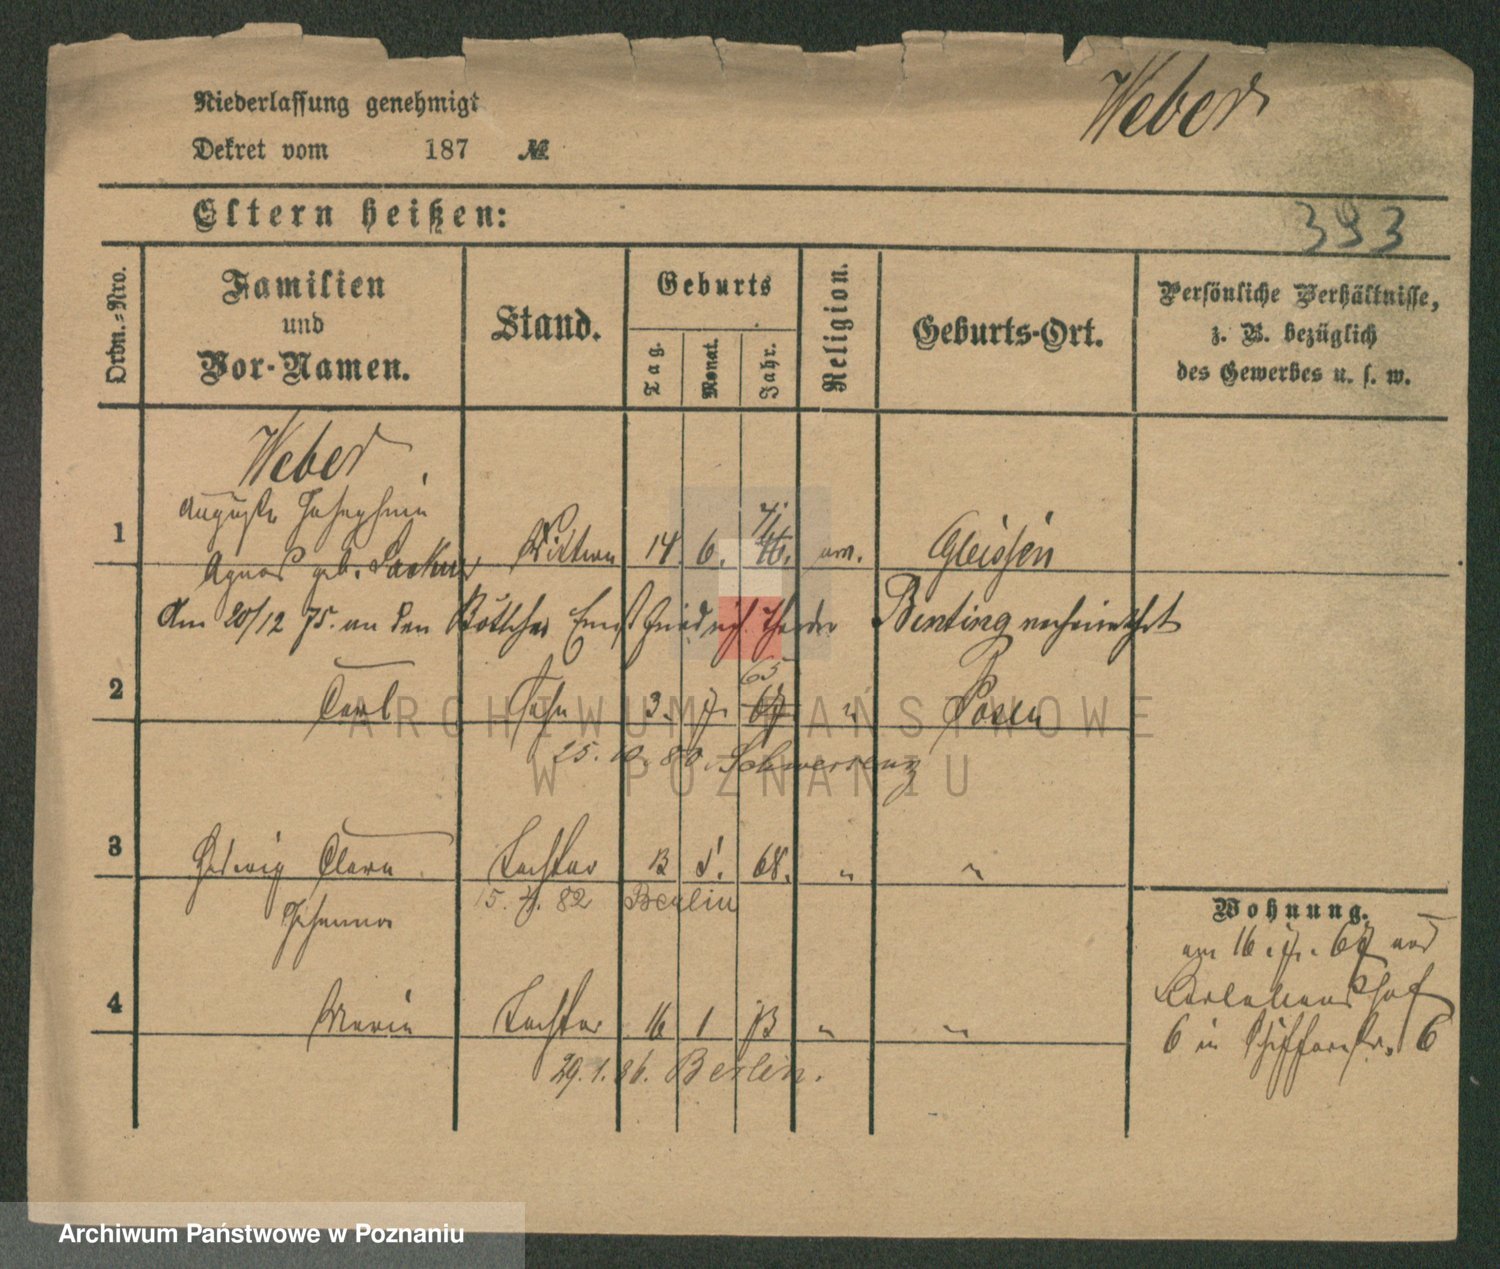 Niederlassung genehmigt
Weber
Dekret vom 187 №
Eltern heißen:
393
Ordn.-Nro.
Familien
und
Vor-Namen.
Stand.
Geburts
Tag.
Monat.
Jahr.
Religion.
Geburts-Ort.
Persönliche Verhältnisse,
z. B. bezüglich
des Gewerbes u. s. w.
Weber
Auguste Josephine
1 Agnes geb. Wittwe 14. 6. ev. Gleissen
Am 20/12 75. an den Böttcher Ernst Friedrich Benting verheirathet
65
2 Carl Sohn 3. 7. 67 " Posen
25. 10. 80. Schwersenz
3 Hedwig Clara Tochter 13 5. 68. " "
Johanna 15. 4. 82 Berlin
4 Marie Tochter 16 1 " "
29. 1. 86. Berlin.
Wohnung.
am 16. 7. 67 aus
6 in Schifferstr. 6
ARCHIWUM PAŃSTWOWE
W POZNANIU
Archiwum Państwowe w Poznaniu